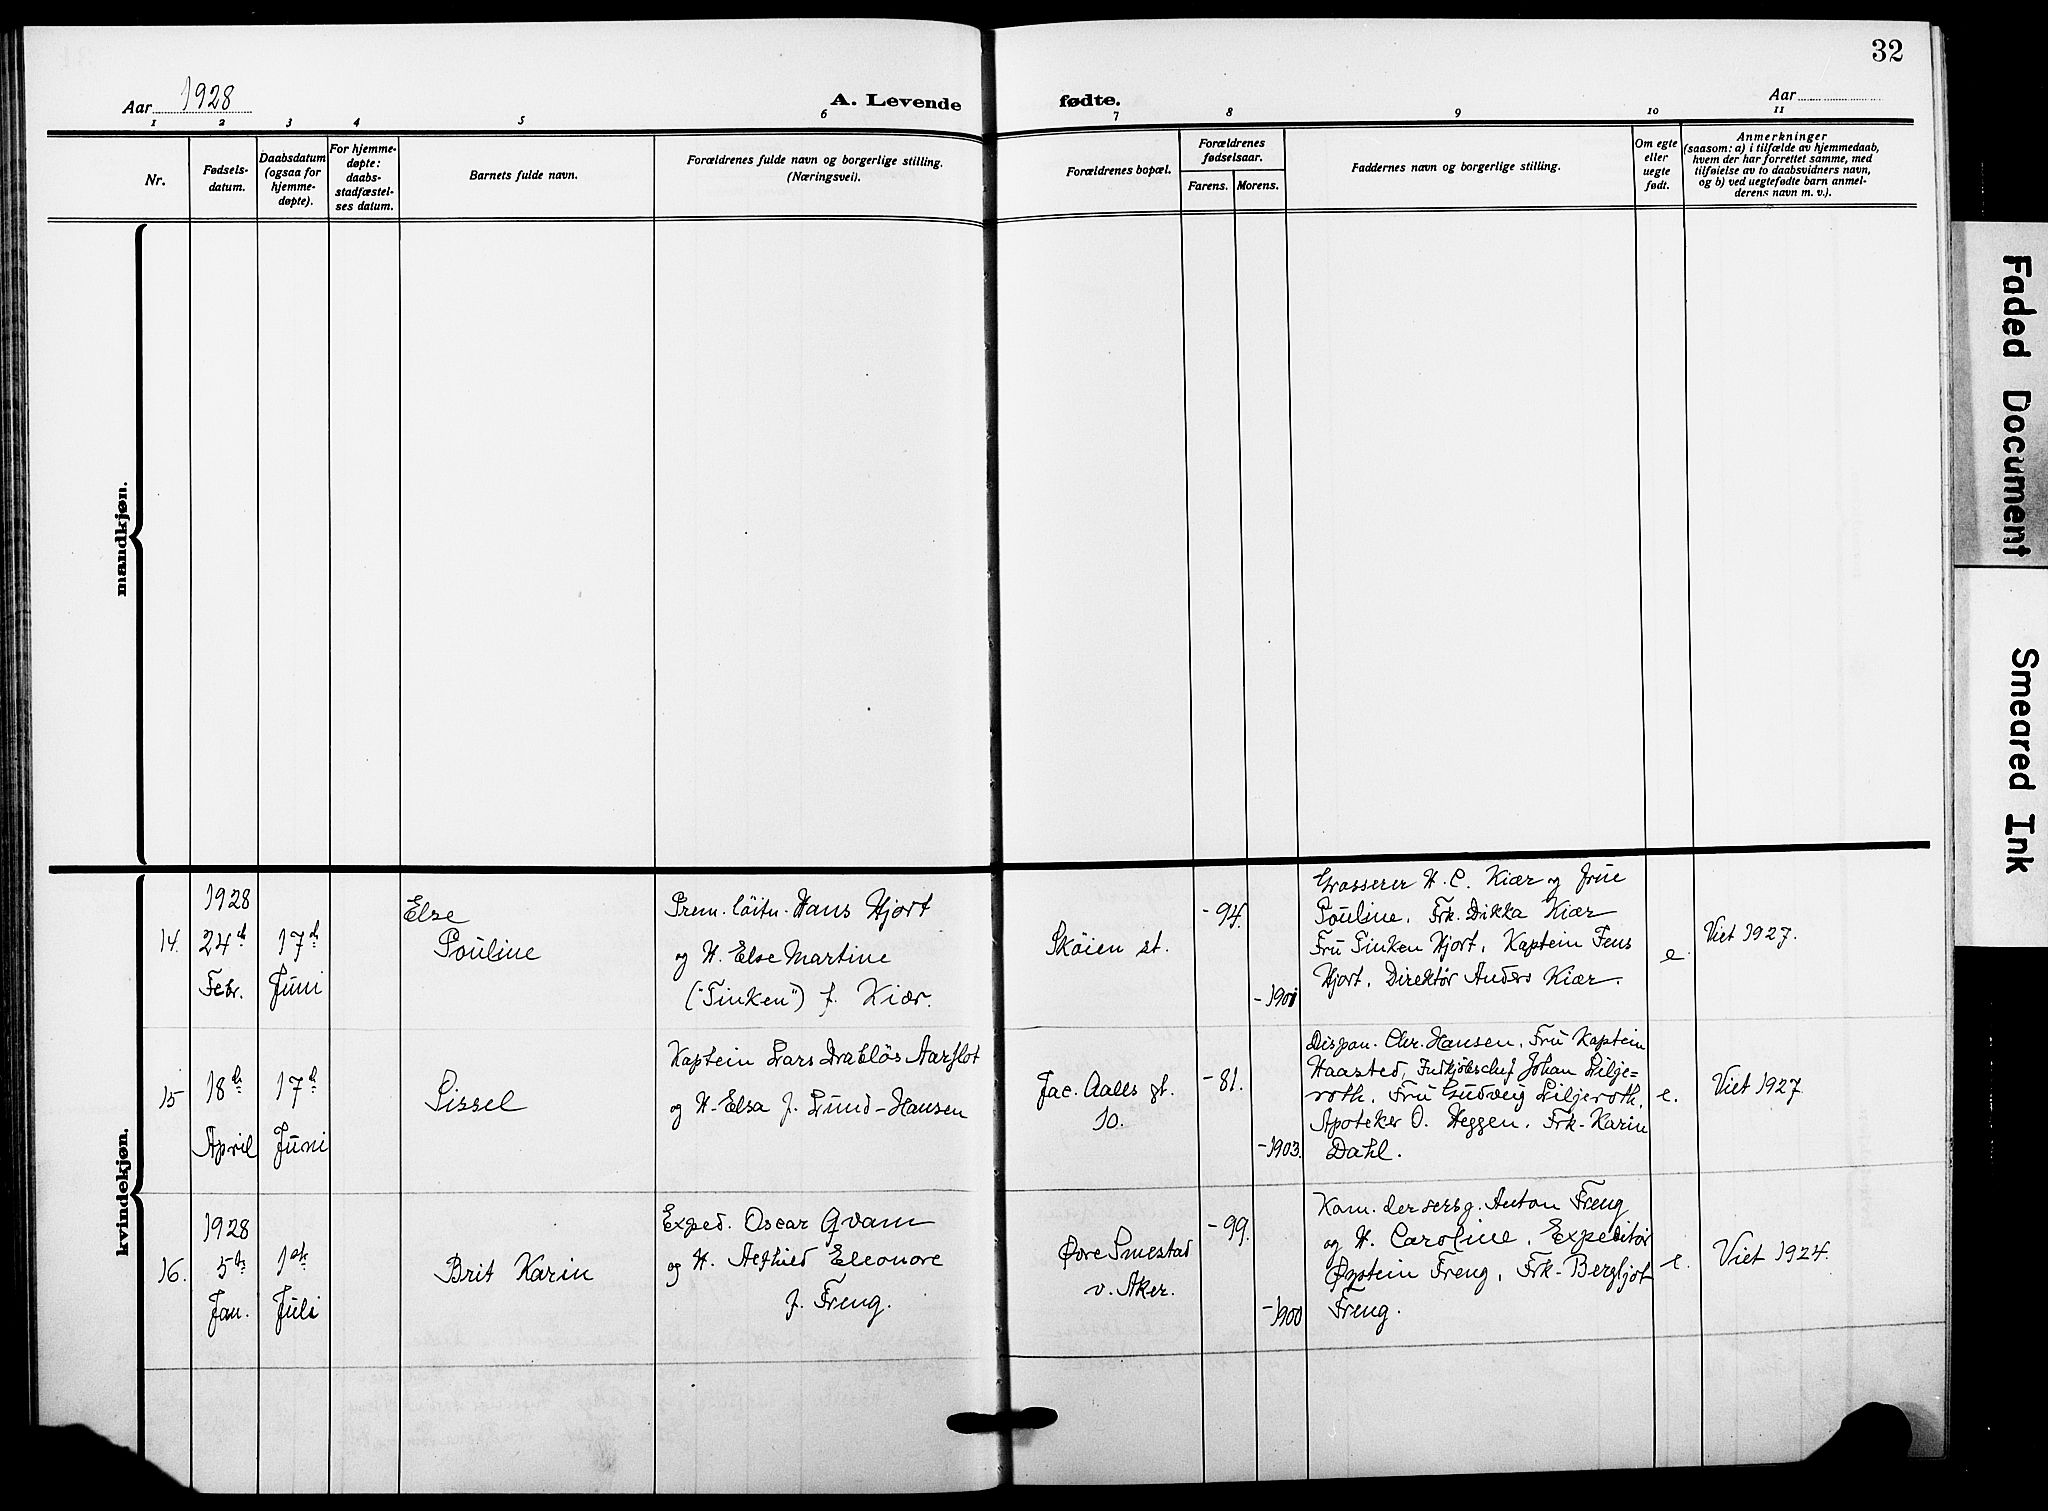 32
Aar 1928
A. Levende fødte.
Aar
1 2 3 4 5 6 7 8 9 10 11
Nr.
Fødsels-
datum.
Daabsdatum
(ogsaa for
hjemme-
døpte).
For hjemme-
døpte:
daabs-
stadfæstel-
ses datum.
Barnets fulde navn.
Forældrenes fulde navn og borgerlige stilling.
(Næringsvei).
Forældrenes bopæl.
Forældrenes
fødselsaar.
Farens. Morens.
Faddernes navn og borgerlige stilling.
Om egte
eller
uegte
født.
Anmerkninger
(saasom: a) i tilfælde av hjemmedaab,
hvem der har forrettet samme, med
tilføielse av to daabsvidners navn,
og b) ved uegtefødte barn anmel-
derens navn m. v.).
mandkjøn.
kvindekjøn.
14.
1928
24de
Febr.
17de
Juni
Else
Pouline
Prem. löitn. Hans Hjort
og H. Else Martine
("Tinken") f. Kiær.
Sköien st.
-94.
-1901
Grosserer H. C. Kiær og frue
Pouline. Frk. Dikka Kiær
Fru Tinken Hjort. Kaptein Jens
Hjort. Direktør Anders Kiær.
e.
Viet 1927.
15
18de
April
17de
Juni
Sissel
Kaptein Lars Drabløs Aarflot
og H. Elsa f. Lund-Hansen
Jac. Aalls gt.
10.
-81.
-1903.
Dispon. Chr. Hansen. Fru Kaptein
Haasted, Johan Lilje=
roth. Fru Gudveig Liljeroth.
Apoteker O. Heggen. Frk. Karin
Dahl.
e.
Viet 1927
16.
1928
5te
Jan.
1ste
Juli
Brit Karin
Exped. Oscar Qvam
og H. Eleonore
f. Freng.
Øvre Smestad
v. Aker.
-99.
-1900
Anton Freng
og H. Caroline. Expeditør
Øystein Freng. Frk. Bergljot
Freng.
e.
Viet 1924.
Faded Document
Smeared Ink